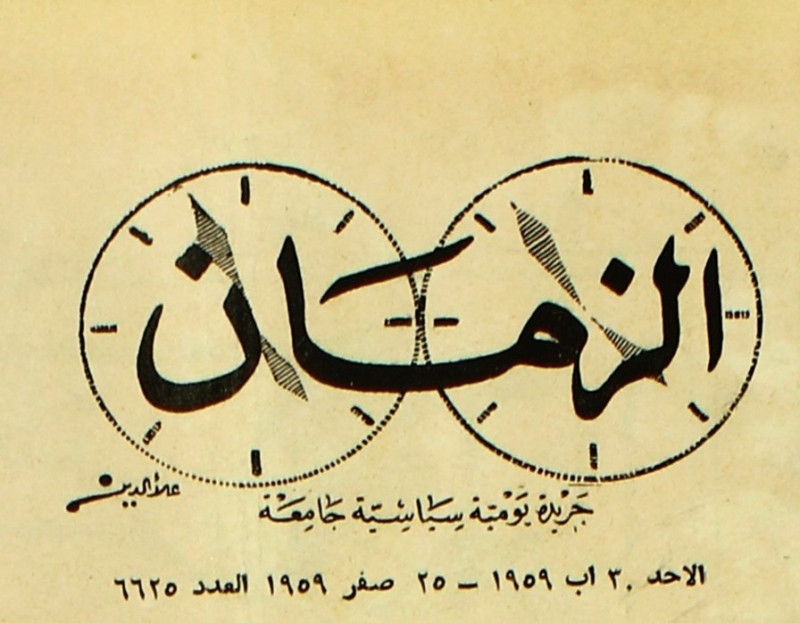 الزمان
علاء الدين
جريدة يومية سياسية جامعة
الاحد ٣٠ اب ١٩٥٩ – ٢٥ صفر ١٩٥٩ العدد ٦٦٢٥